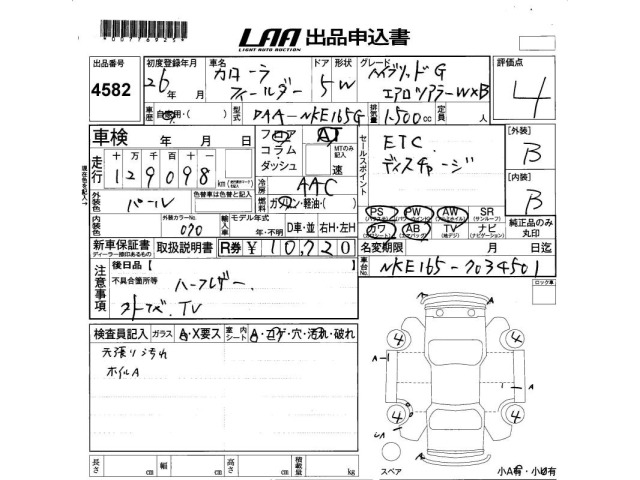 *00769257*
LAA 出品申込書
LIGHT AUTO AUCTION
出品番号 初度登録年月 車名 ドア 形状 グレード 評価点
4582 26年 月 カローラ フィールダー 5W ハイブリッドG エアロツアラーWxB 4
車歴 自家用・( ) 型式 DAA-NKE165G 排気量 1500cc 定員 人
車検 年 月 日 フロア コラム ダッシュ AT MTのみ記入 速
セールスポイント ETC ディスチャージ
[外装] B
走行 十万千百十 129098 km
外装色 パール 色替車は色替と記入
冷房 AAC
燃料 ガソリン・軽油・( )
[内装] B
内装色 外装カラーNo. 070 輸入車 モデル年式 年・不明 D車・並 右H・左H
PS PW AW SR (サンルーフ)
カワ AB TV ナビ (ナビゲーション)
純正品のみ丸印
新車保証書 取扱説明書 R券 ¥10,720
ディーラー捺印あるもの
名変期限 月 日迄
車台No. NKE165-7034501
ロック車
注意事項 後日品( )
不具合箇所等 ハーフレザー.
TV
検査員記入 ガラス A・X要ス 室内シート A・コゲ・穴・汚れ・破れ
天張り汚れ
ホイルA
4 4
A A
4 4
A
スペア
小A有・小U有
長さ cm 幅 cm 高さ cm 積載量 kg